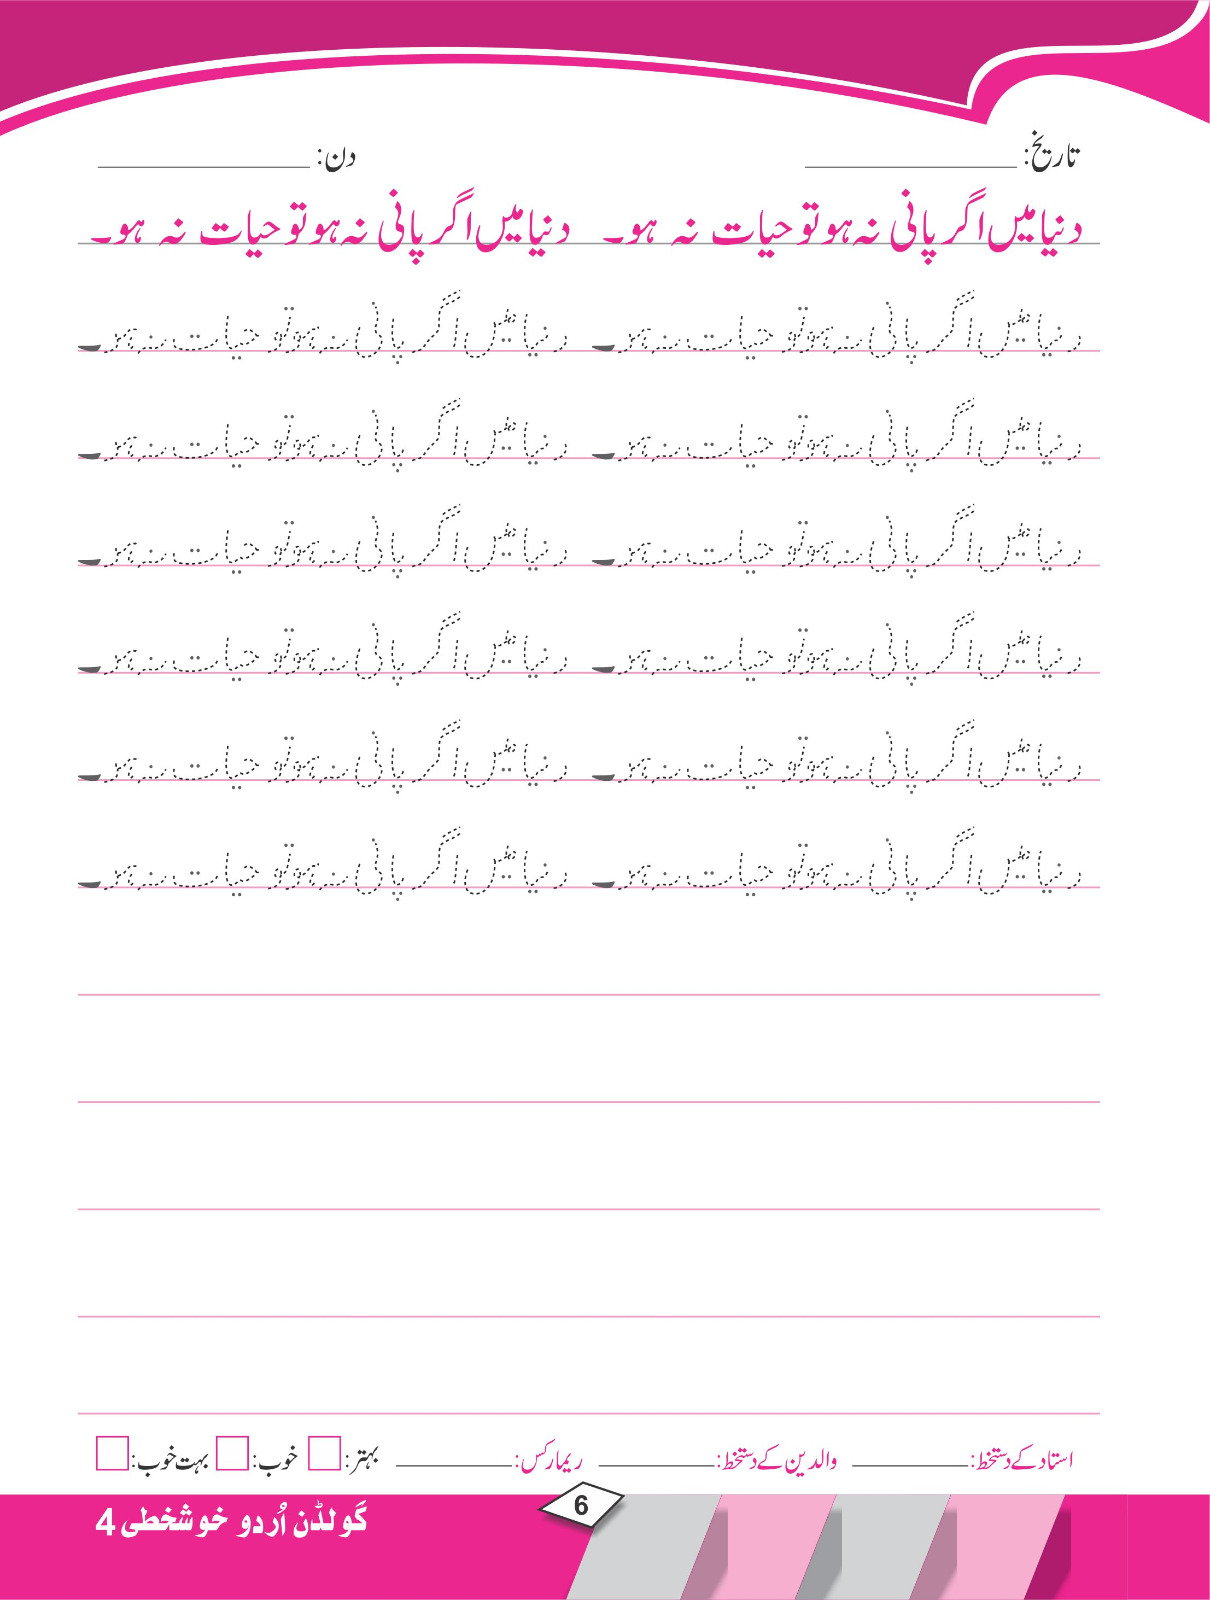 تاریخ: ____________ دن: ____________
دنیا میں اگر پانی نہ ہو تو حیات نہ ہو۔ دنیا میں اگر پانی نہ ہو تو حیات نہ ہو۔
دنیا میں اگر پانی نہ ہو تو حیات نہ ہو۔ دنیا میں اگر پانی نہ ہو تو حیات نہ ہو۔
دنیا میں اگر پانی نہ ہو تو حیات نہ ہو۔ دنیا میں اگر پانی نہ ہو تو حیات نہ ہو۔
دنیا میں اگر پانی نہ ہو تو حیات نہ ہو۔ دنیا میں اگر پانی نہ ہو تو حیات نہ ہو۔
دنیا میں اگر پانی نہ ہو تو حیات نہ ہو۔ دنیا میں اگر پانی نہ ہو تو حیات نہ ہو۔
دنیا میں اگر پانی نہ ہو تو حیات نہ ہو۔ دنیا میں اگر پانی نہ ہو تو حیات نہ ہو۔
دنیا میں اگر پانی نہ ہو تو حیات نہ ہو۔ دنیا میں اگر پانی نہ ہو تو حیات نہ ہو۔
استاد کے دستخط: ________ والدین کے دستخط: ________ ریمارکس: ________ بہتر: خوب: بہت خوب:
6
گولڈن اُردو خوشخطی 4